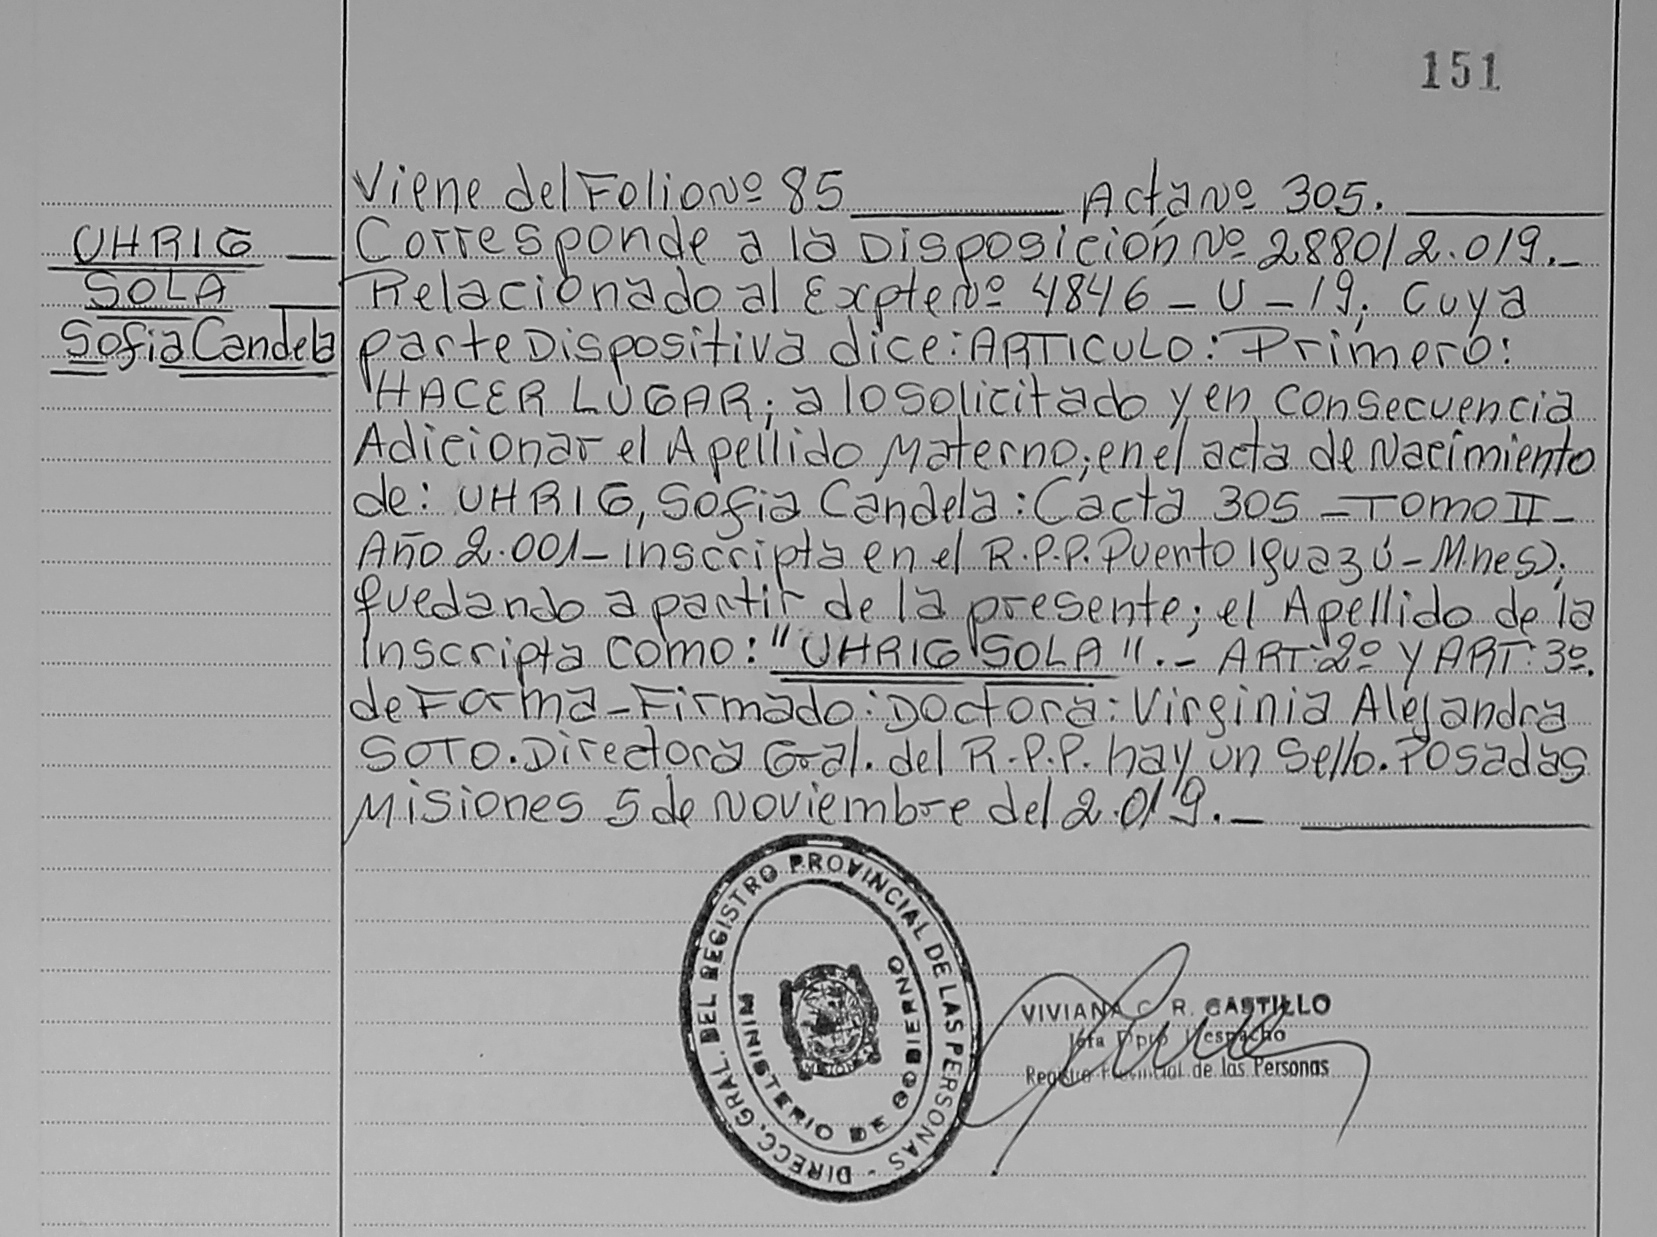 151
Viene del Folio Nº 85 Acta Nº 305.
UHRIG
SOLA
Sofia Candela
Corresponde a la Disposición Nº 2880/2.019.-
Relacionado al Expte Nº 4846 - U - 19; Cuya
parte Dispositiva dice: ARTICULO: Primero:
HACER LUGAR; a lo solicitado y en consecuencia
Adicionar el Apellido Materno; en el acta de Nacimiento
de: UHRIG, Sofia Candela: (acta 305 - Tomo II -
Año 2.001 - inscripta en el R.P.P. Puerto Iguazú - Mnes);
quedando a partir de la presente; el Apellido de la
inscripta como: "UHRIG SOLA".- ART: 2º Y ART: 3º.
de Forma - Firmado: Doctora: Virginia Alejandra
SOTO. Directora Gral. del R.P.P. hay un Sello. Posadas
Misiones 5 de Noviembre del 2.019.-
DIRECC. GRAL. DEL REGISTRO PROVINCIAL DE LAS PERSONAS -
MINISTERIO DE GOBIERNO
VIVIANA C. R. CASTILLO
Jefa Dpto Despacho
Registro Provincial de las Personas